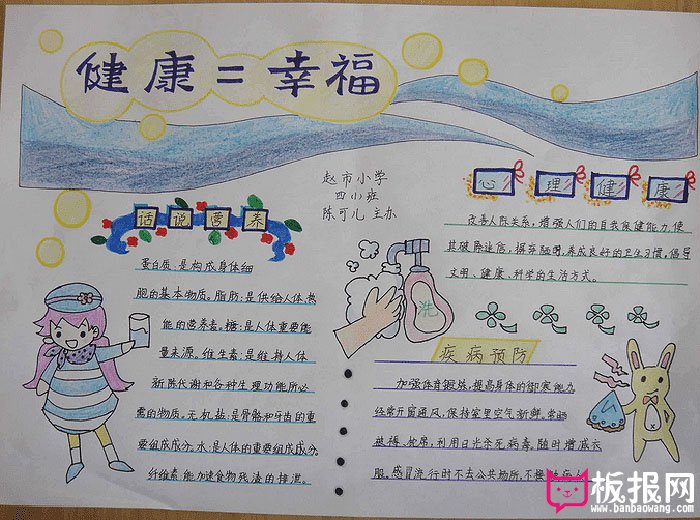 健康=幸福
赵市小学
四(1)班
陈可儿 主办
话说营养
蛋白质:是构成身体细
胞的基本物质。脂肪:是供给人体热
能的营养素。糖:是人体重要能
量来源。维生素:是维持人体
新陈代谢和各种生理功能所必
需的物质。无机盐:是骨骼和牙齿的重
要组成成分。水:是人体的重要组成成分。
纤维素:能加速食物残渣的排泄。
心理健康
改善人际关系,增强人们的自我保健能力,使
其破除迷信,摒弃陋习,养成良好的卫生习惯,倡导
文明、健康、科学的生活方式。
洗
疾病预防
加强体育锻炼,提高身体的御寒能力。
经常开窗通风,保持室里空气新鲜,常晒
被褥、枕席,利用日光杀死病毒。随时增减衣
服。感冒流行时不去公共场所,不
板报网
www.banbaowang.com